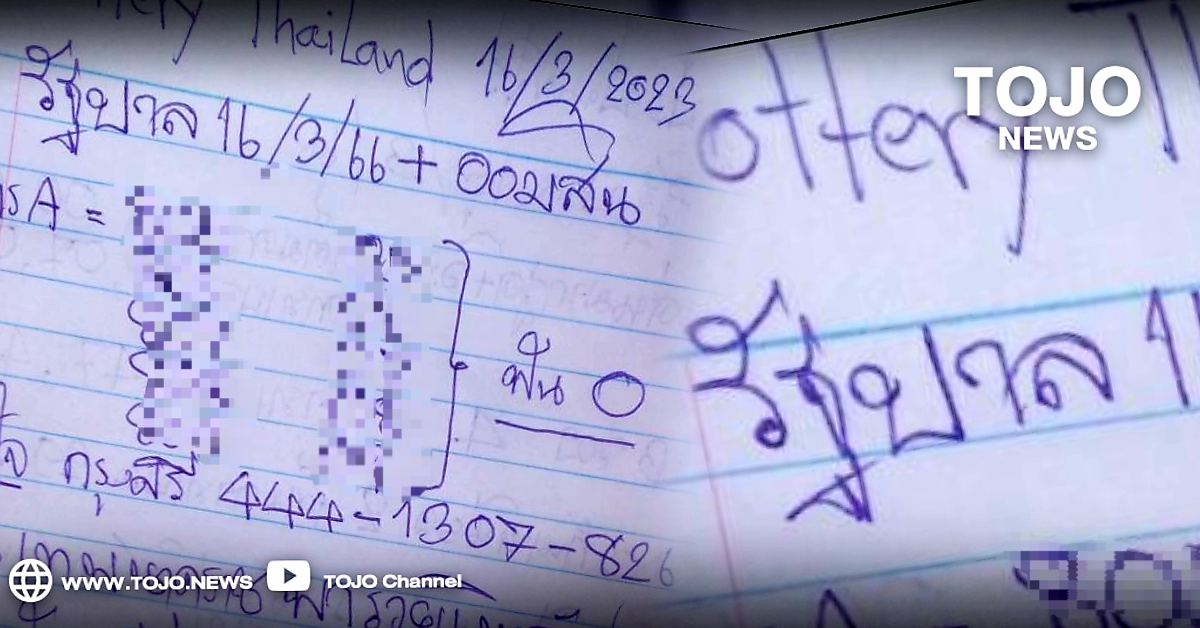 Thailand 16/3/2023
รัฐบาล 16/3/66 + ออมสิน
A =
ฟัน 0
กรุงศรี 444-1307-826
ottery
รัฐบาล 1
TOJO
NEWS
WWW.TOJO.NEWS
TOJO Channel